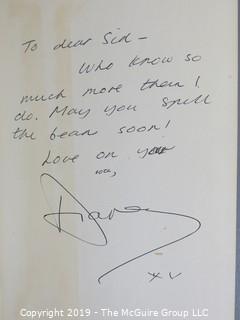 To dear Sid -
Who know so
much more than I
do. May you spill
the bean soon!
Love on you
xv
Copyright 2019 - The McGuire Group LLC